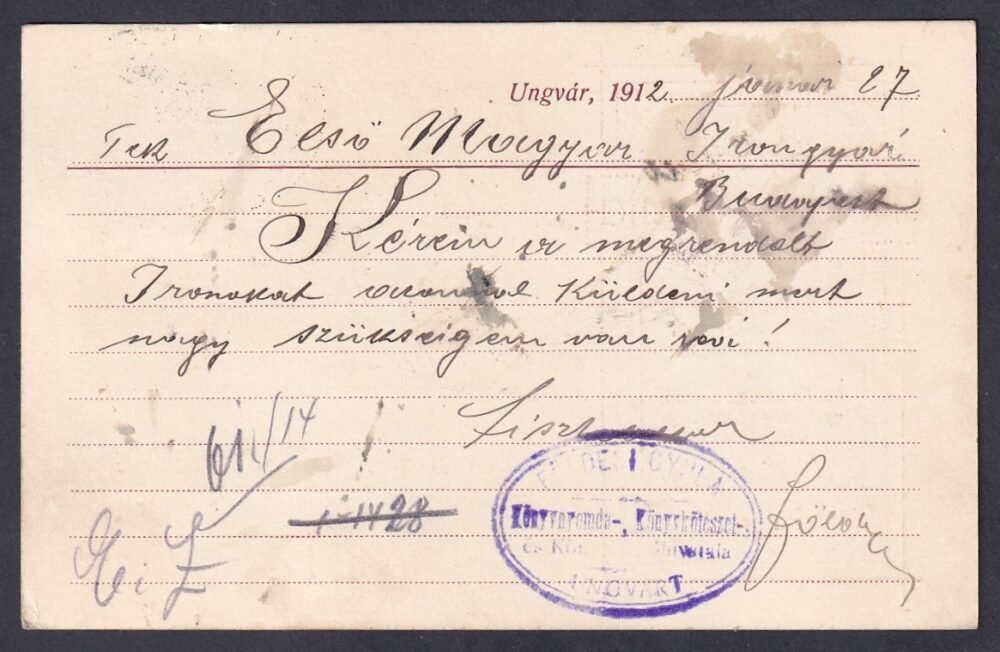 Ungvár, 1912 januar 27
Tek Első Magyar Irongyár
Budapest
Kérem a megrendelt
Ironokat azonnal küldeni mert
nagy szükségem van reá!
Tisztelettel
FÖLDESI GYULA
Könyvnyomda-, Könyvkötészet-,
és
UNGVÁRT
1-1428